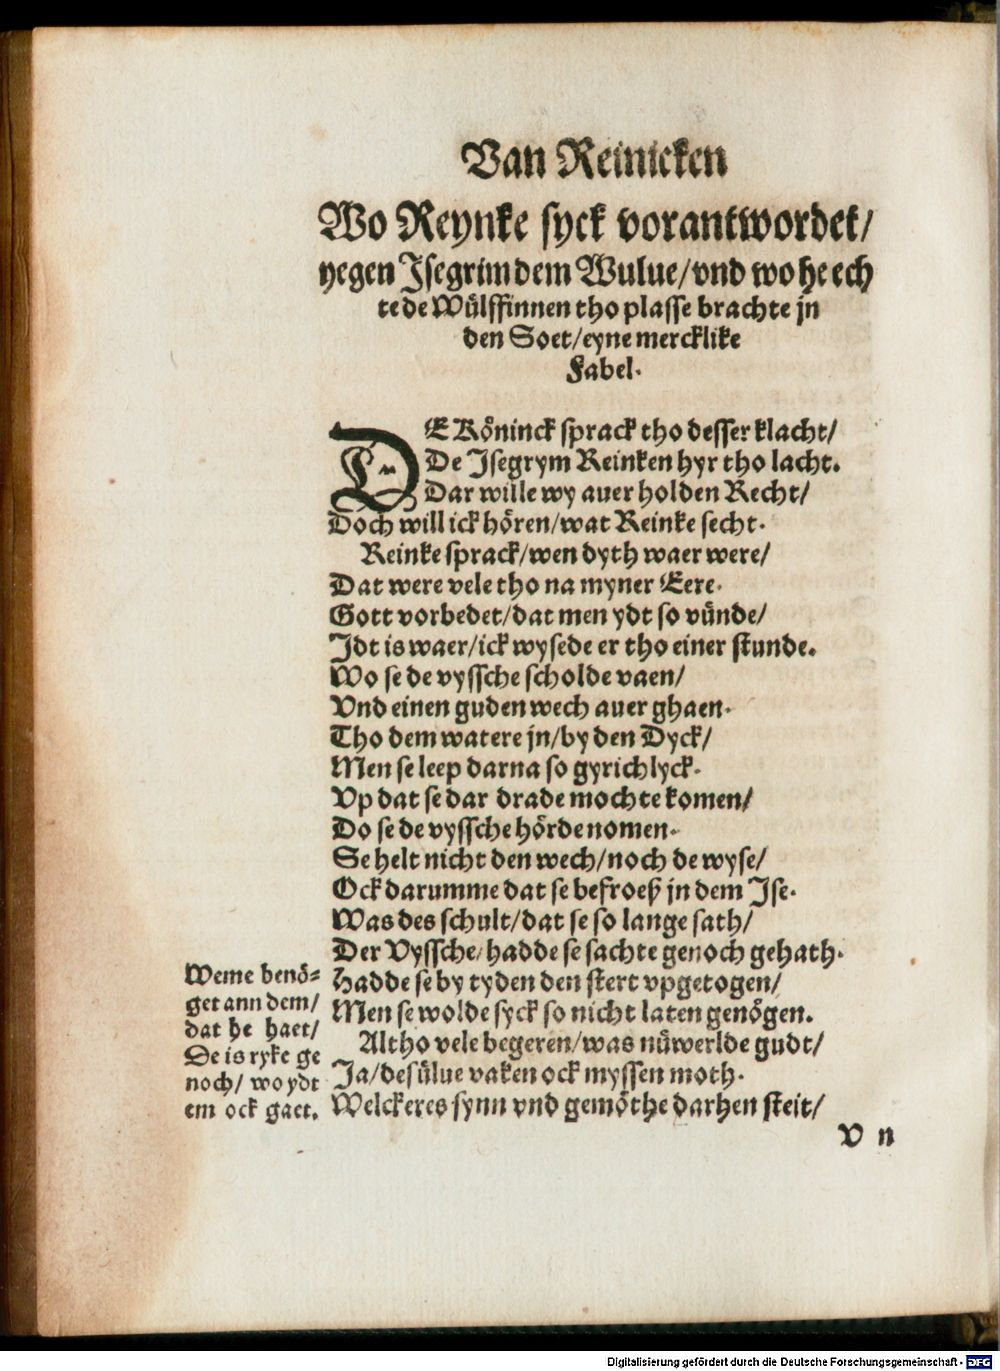 Van Reinicken
Wo Reynke syck vorantwordet/
yegen Jsegrim dem Wulue/vnd wo he ech
te de Wülffinnen tho plasse brachte jn
den Soet/eyne mercklike
Fabel.
DE Köninck sprack tho desser klacht/
De Jsegrym Reinken hyr tho lacht.
Dar wille wy auer holden Recht/
Doch will ick hören/wat Reinke secht.
Reinke sprack/wen dyth waer were/
Dat were vele tho na myner Eere.
Gott vorbedet/dat men ydt so vünde/
Jdt is waer/ick wysede er tho einer stunde.
Wo se de vyssche scholde vaen/
Vnd einen guden wech auer ghaen.
Tho dem watere jn/by den Dyck/
Men se leep darna so gyrichlyck.
Vp dat se dar drade mochte komen/
Do se de vyssche hörde nomen.
Se helt nicht den wech/noch de wyse/
Ock darumme dat se befroeß jn dem Jse.
Was des schult/dat se so lange sath/
Der Vyssche/hadde se sachte genoch gehath.
Hadde se by tyden den stert vpgetogen/
Men se wolde syck so nicht laten genögen.
Al tho vele begeren/was nüwerlde gudt/
Ja/desülue vaken ock myssen moth.
Welckeres synn vnd gemöthe darhen steit/
Weme benö=
get ann dem/
dat he haet/
De is ryke ge
noch/ wo ydt
em ock gaet.
V n
Digitalisierung gefördert durch die Deutsche Forschungsgemeinschaft - DFG